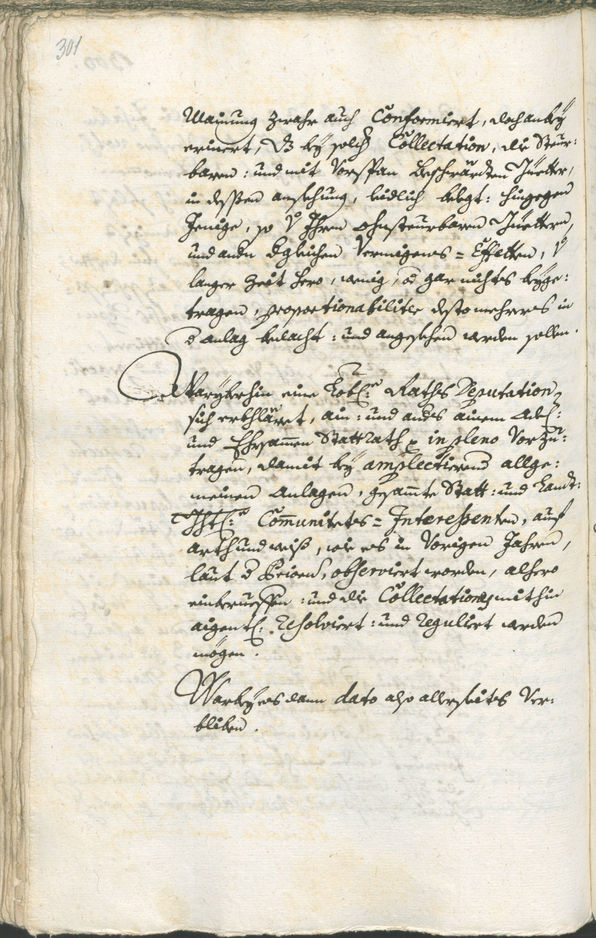 301
Mainung zwahr auch Conformiert, doch anbey
erinert, dz bey solch Collectation, die Steur-
baren: und mit Vorspan beschwärden Güetter,
in dessen ansehung, leidlich belegt: hingegen
Jenige, so V Ihren ohnsteurbaren Güettern,
und andn dgleichen Vermögens= Effecten, V
langer Zeit hero, wenig, od gar nichts beyge-
tragen, proportionabiliter desto mehrers in
d anlag bedacht: und angesehen werden sollen.
Wayterhin eine Lobl: Raths Deputation,
sich erkhläret, ain: und anders ainem Lobl:
und Ehrsamen Stattrath in pleno Vorzu-
tragen, damit bey amplectierend allge-
meinen Anlagen, gesammte Statt: und Landt-
Communitets= Interessenten, auf
arth und weiß, wie es in Vorigen Jahren,
laut d observiert worden, alhero
einberueffen: und die Collectation mithin
aigentl: resolviert: und reguliert werden
mögen.
Warbey es dann dato also allerseites Ver-
bliben.